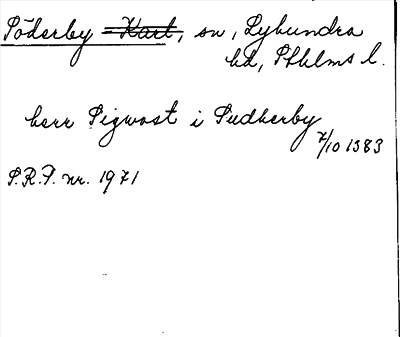 Söderby Karl, sn, Lyhundra
hd, Sthlms l.
herr Sigwast i Sudherby
7/10 1383
S.R.P. nr. 1971